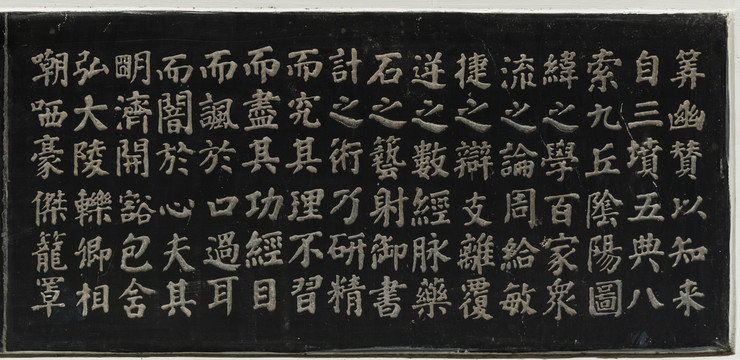 筭幽賛以知来
自三墳五典八
索九丘隂陽圖
緯之學百家衆
流之論周給敏
捷之辯支離覆
逆之數經脉藥
石之藝射御書
計之術乃研精
而究其理不習
而盡其功經目
而諷於口過耳
而闇於心夫其
眀濟開豁包含
弘大陵轢卿相
嘲哂豪傑籠罩